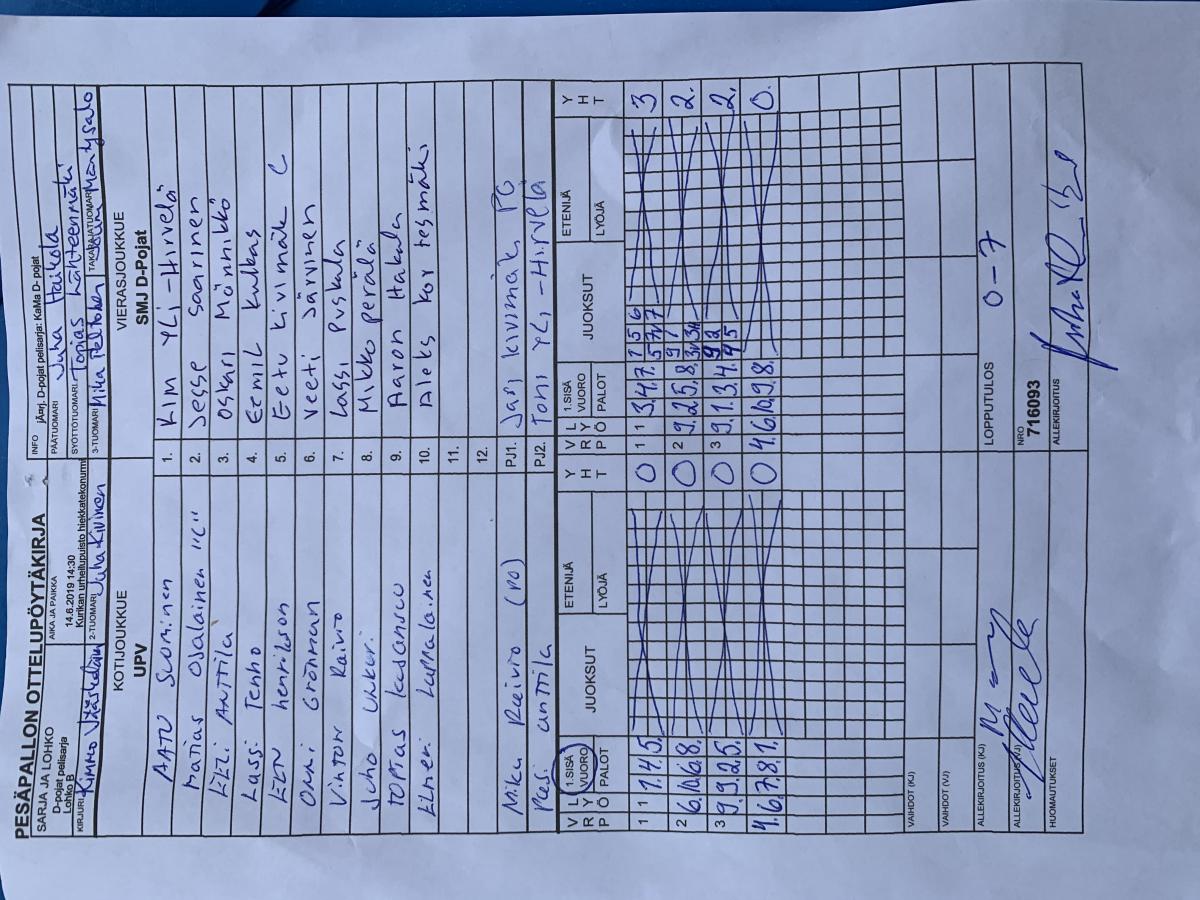 PESÄPALLON OTTELUPÖYTÄKIRJA
SARJA JA LOHKO
D-pojat pelisarja
Lohko B
AIKA JA PAIKKA
14.6.2019 14:30
Kurikan urheilupuisto hiekkatekonurmi
INFO jÄrrj. D-pojat pelisarja: KaMa D- pojat
PÄÄTUOMARI Juha Haikola
SYÖTTÖTUOMARI Tomas Lähteenmäki
KIRJURI Kimmo
2-TUOMARI Juha Kivinen
3-TUOMARI Mika Peltonen
TAKARAJATUOMARI Mäntysalo
KOTIJOUKKUE
UPV
VIERASJOUKKUE
SMJ D-Pojat
AATU Suominen 1. KIM YLI-HIRVELÄ
Matias Osalainen "C" 2. Jesse Saarinen
Elli Anttila 3. Oskari Männikkö
Lassi Tenho 4. Eemil Kulkas
henrikson 5. Eetu Kivimäki C
Onni Grönman 6. Veeti Järvinen
Raivio 7. Lassi Puskala
Juho Unkuri 8. Mikko perälä
kasanscu 9. Aaron Hakala
Elmeri Lappalainen 10. Aleksi Kortesmäki
11.
12.
Mika Raivio (PO) PJ1. Jani Kivimäki PG
Pasi anttila PJ2. Toni YLI-Hirvelä
V R P L Y Ö 1.SISÄ VUORO PALOT JUOKSUT ETENIJÄ LYÖJÄ Y H T V R P L Y Ö 1.SISÄ VUORO PALOT JUOKSUT ETENIJÄ LYÖJÄ Y H T
1 1 1.4.5. 0 1 1 3.4.7. 1 5 6 5 7 7 3
2 6.10.6.8. 0 2 9.2.5.8. 9 1 2.
3 9.9.2.5. 0 3 9.1.3.4. 9 2 4 5 2.
4.6.7.8.1. 0 4.6.10.9.8. 0.
VAIHDOT (KJ)
VAIHDOT (VJ)
ALLEKIRJOITUS (KJ)
LOPPUTULOS 0-7
ALLEKIRJOITUS (VJ)
NRO
716093
HUOMAUTUKSET
ALLEKIRJOITUS